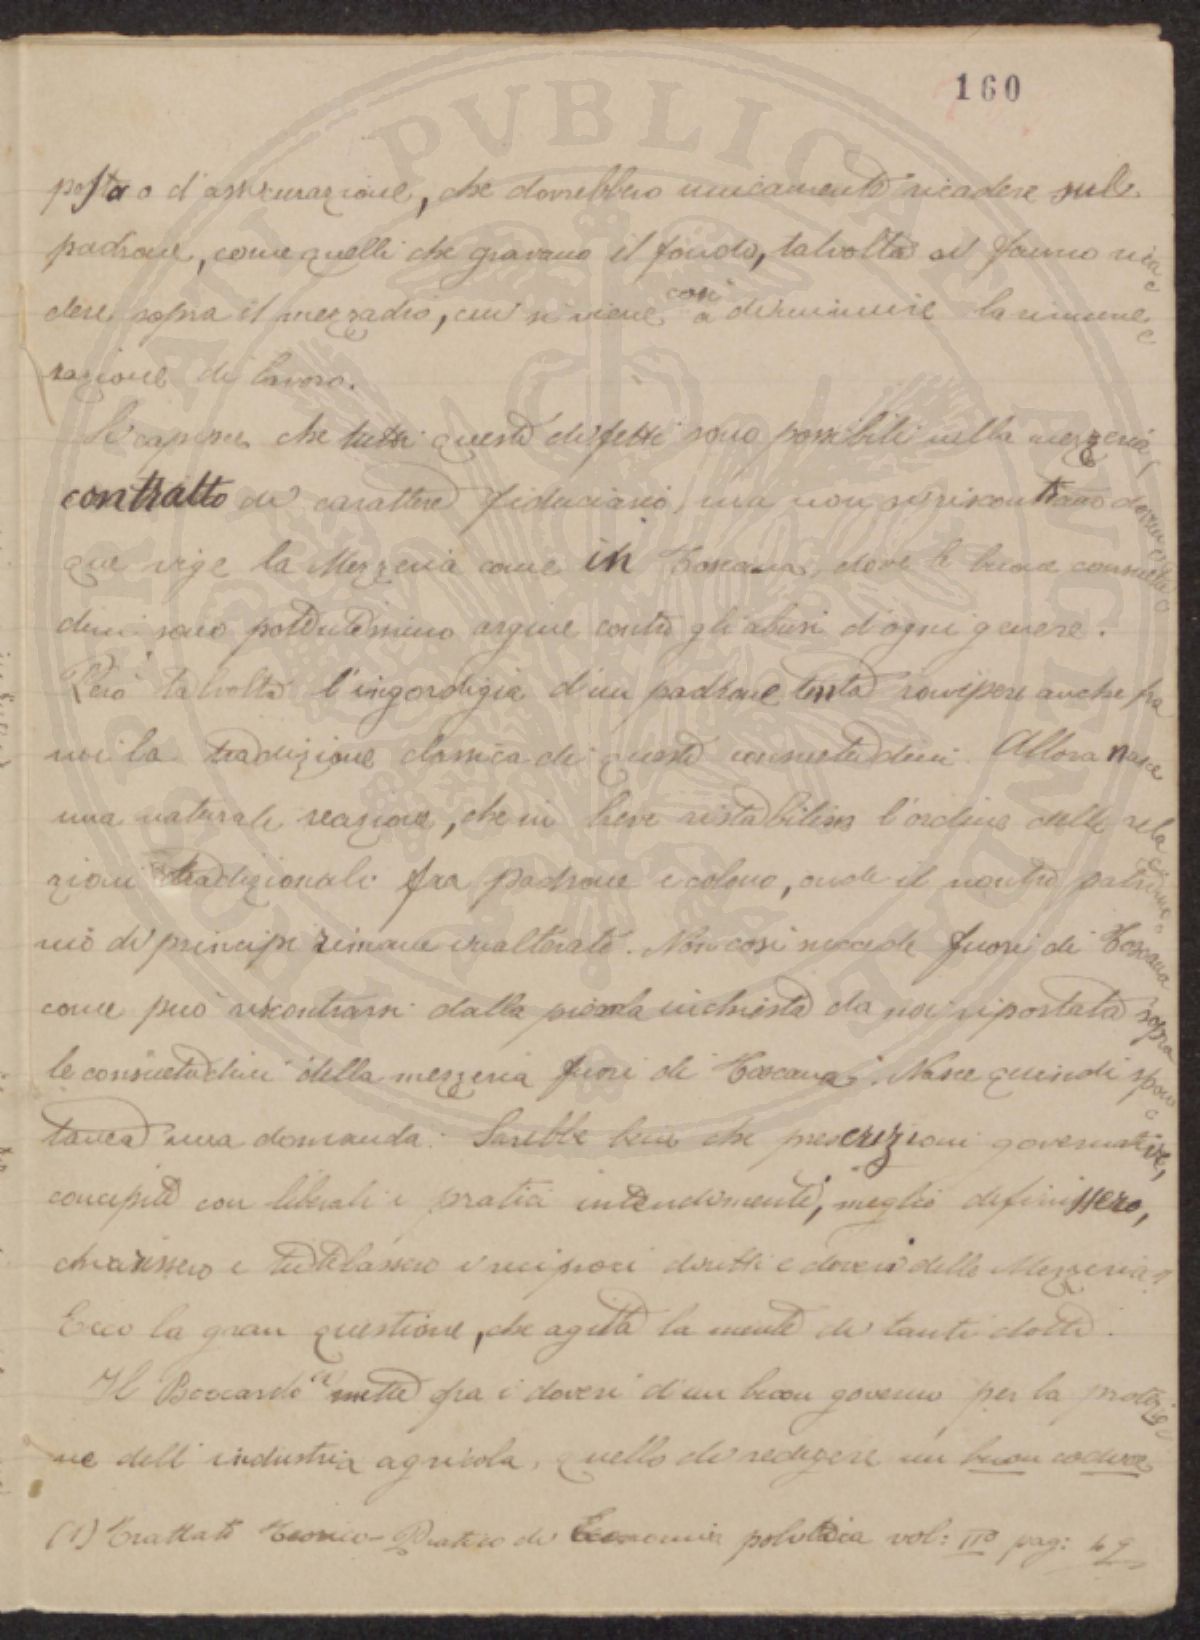 160
posta o d'assicurazione, che dovrebbero unicamente ricadere sul
padrone, come quelli che gravano il fondo, talvolta si fanno rica=
dere sopra il mezzadro, cui si viene così a diminuire la rimune=
razione di lavoro.
Si capisce che tutti questi difetti sono possibili nella mezzeria,
contratto di carattere fiduciario, ma non si riscontrano dovun=
que vige la Mezzeria come in Toscana, dove le buone consuetu=
dini sono potentissimo argine contro gli abusi d'ogni genere.
Però talvolta l'ingordigia d'un padrone tenta rompere anche fra
noi la tradizione classica di queste consuetudini. Allora nasce
una naturale reazione, che in breve ristabilisce l'ordine delle rela=
zioni tradizionali fra padrone e colono, onde il nostro patrimo=
nio di principi rimane inalterato. Non così succede fuori di Toscana
come può riscontrarsi dalla piccola inchiesta da noi riportata sopra
le consuetudini della mezzeria fuori di Toscana. Nasce quindi spon=
tanea una domanda: Sarebbe bene che prescrizioni governative,
concepite con liberali e pratici intendimenti, meglio definissero,
chiarissero e tutelassero i reciproci diritti e doveri della Mezzeria?
Ecco la gran questione, che agita la mente di tanti dotti.
Il Boccardo (1) mette fra i doveri d'un buon governo per la protezio=
ne dell'industria agricola, quello di redigere un buon codice
(1) Trattato Teorico-Pratico di Economia politica vol: IIº pag: 49
PUBLICAE